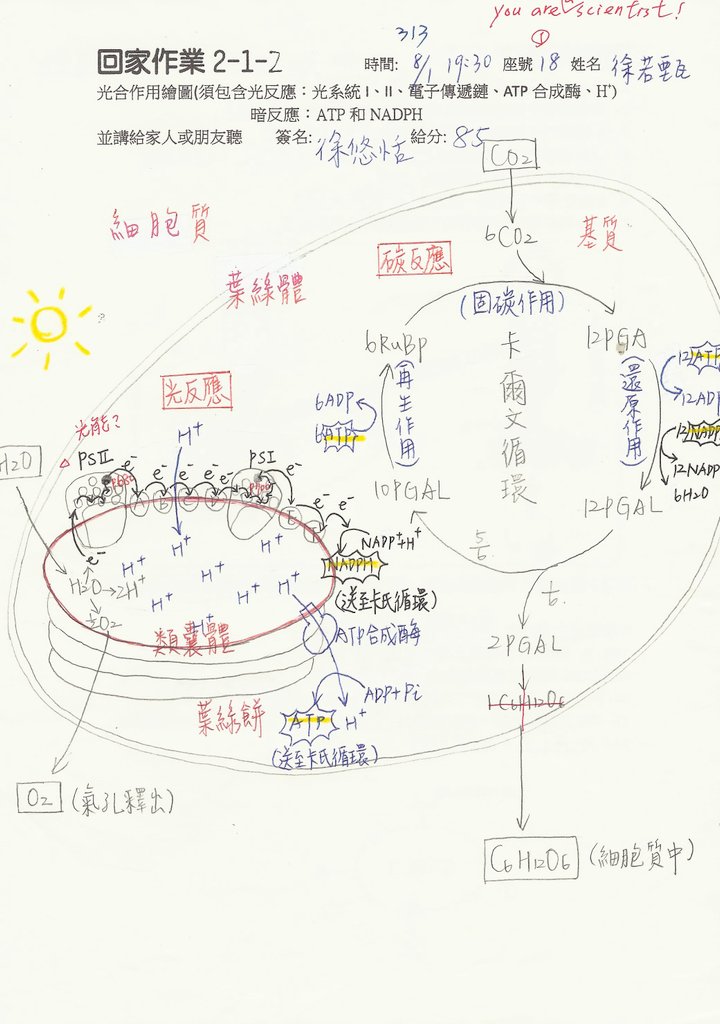 you are a scientist!
①
313
回家作業 2-1-2 時間: 8/1 19:30 座號 18 姓名 徐若甄
光合作用繪圖(須包含光反應：光系統 I、II、電子傳遞鏈、ATP 合成酶、H⁺)
暗反應：ATP 和 NADPH
並講給家人或朋友聽 簽名: 徐悠恬 給分: 85
CO2
細胞質
6CO2
基質
碳反應
葉綠體
(固碳作用)
6RuBp
12PGA
卡爾文循環
(再生作用)
(還原作用)
12ATP
12ADP
6ADP
6ATP
12NADP
12NADP
6H2O
10PGAL
12PGAL
光反應
光能?
H⁺
H2O
PSII
PSI
P680
P700
e⁻ e⁻ e⁻ e⁻ e⁻ e⁻ e⁻ e⁻
A B C D
E F
e⁻
NADP⁺+H⁺
NADPH
(送至卡氏循環)
H⁺ H⁺ H⁺ H⁺ H⁺ H⁺ H⁺ H⁺
H2O→2H⁺
½O2
5/6
1/6
類囊體
ATP合成酶
2PGAL
1C6H12O6
ADP+Pi
葉綠餅
ATP
H⁺
(送至卡氏循環)
O2 (氣孔釋出)
C6H12O6 (細胞質中)